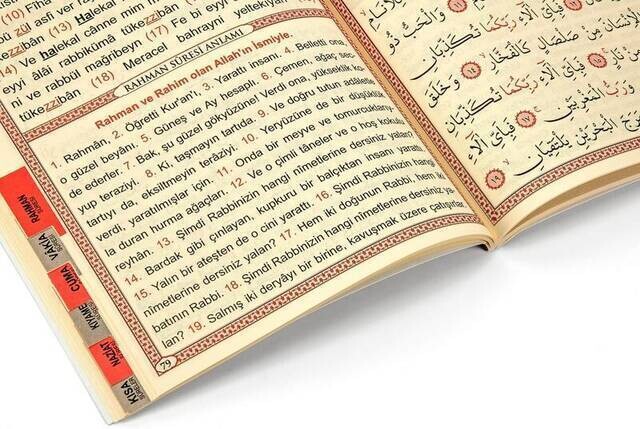 10) Fîha
asfi ver ra
zül
(12)
Halekal
bü
zzibân
(13)
ve halekal cânne min
eyyi âlâi rabbikümâ tükezzibân
ni ve rabbül mağribeyn (17) Fe bi eyyi
tükezzibân (18) Meracel bahrayni yeltekiyân
RAHMÂN SÛRESİ ANLAMI
Rahman ve Rahim olan Allah'ın ismiyle.
1. Rahmân, 2. Öğretti Kur'an'ı, 3. Yarattı insanı. 4. Belletti ona,
o güzel beyânı. 5. Güneş ve Ay hesaplı. 6. Çemen, ağaç sec-
de ederler. 7. Bak, şu güzel gökyüzüne! Verdi ona, yükseklik ko-
yup terâziyi. 8. Ki, taşmayın tartıda. 9. Ve doğru tutun adâletle
tartıyı da, eksiltmeyin terâziyi. 10. Yeryüzüne de bir düşüklük
verdi, yaratılmışlar için. 11. Onda bir meyve ve tomurcuklarıy-
la duran hurma ağaçları. 12. Ve o çimli tâneler ve o hoş kokulu
reyhân. 13. Şimdi Rabbinizin hangi nîmetlerine dersiniz yalan?
14. Bardak gibi çınlayan, kupkuru bir balçıktan insanı yarattı.
15. Yalın bir ateşten de o cini yarattı. 16. Şimdi Rabbinizin hangi
nîmetlerine dersiniz yalan? 17. Hem iki doğunun Rabbi, hem iki
batının Rabbi. 18. Şimdi Rabbinizin hangi nîmetlerine dersiniz ya-
lan? 19. Salmış iki deryâyı bir birine, kavuşmak üzere çatışırlar.
79
RAHMAN SÛRESİ
VÂKIA SÛRESİ
CUMA
KIYAME
NAZİAT
KISA SÛRELER
رَبِّكُمَا تُكَذِّبَانِ
مِنْ صَلْصَالٍ كَالْفَخَّارِ ﴿١٤﴾ وَخَلَقَ
﴿١٥﴾ فَبِاَيِّ اٰلَٓاءِ رَبِّكُمَا تُكَذِّبَانِ
﴿١٦﴾ وَرَبُّ الْمَغْرِبَيْنِ ﴿١٧﴾ فَبِاَيِّ اٰلَٓاءِ
الْبَحْرَيْنِ يَلْتَقِيَانِ ﴿١٩﴾